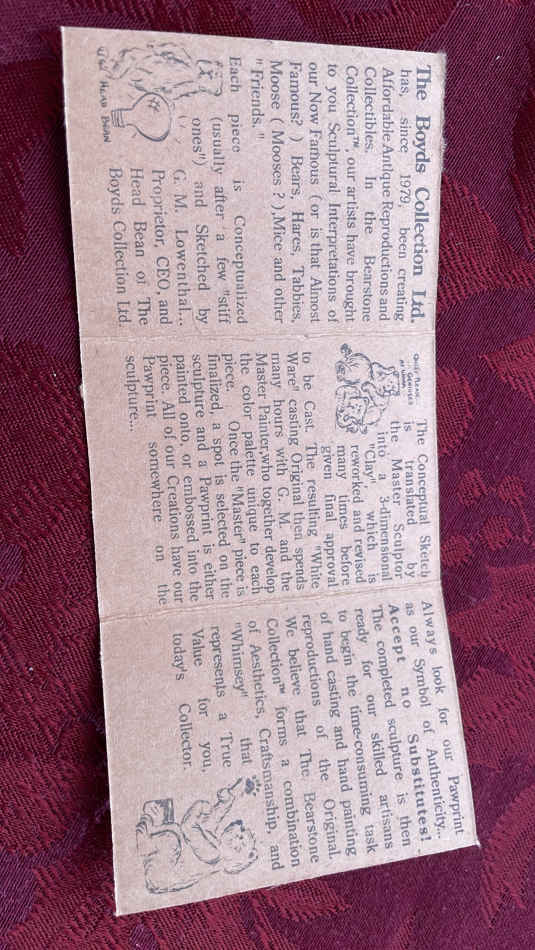 The Boyds Collection Ltd.
has, since 1979, been creating
Affordable Antique Reproductions and
Collectibles. In the Bearstone
Collection™, our artists have brought
to you Sculptural Interpretations of
our Now Famous (or is that Almost
Famous? ) Bears, Hares, Tabbies,
Moose ( Mooses ? ),Mice and other
"Friends."
Each piece is Conceptualized
(usually after a few "stiff
ones") and Sketched by
G. M. Lowenthal...
Proprietor, CEO, and
Head Bean of The
Boyds Collection Ltd.
The HEAD BEAN
Quiet Please...
Genius
at Work
The Conceptual Sketch
is translated by
the Master Sculptor
into a 3-dimensional
"Clay" which is
reworked and revised
many times before
given final approval
to be Cast. The resulting "White
Ware" casting Original then spends
many hours with G. M. and the
Master Painter,who together develop
the color palette unique to each
piece. Once the "Master" piece is
finalized, a spot is selected on the
sculpture and a Pawprint is either
painted onto, or embossed into the
piece. All of our Creations have our
Pawprint somewhere on the
sculpture...
Always look for our Pawprint
as our Symbol of Authenticity...
Accept no Substitutes!
The completed sculpture is then
ready for our skilled artisans
to begin the time-consuming task
of hand casting and hand painting
reproductions of the Original.
We believe that The Bearstone
Collection™ forms a combination
of Aesthetics, Craftsmanship, and
"Whimsey" that
represents a True
Value for you,
today's Collector.